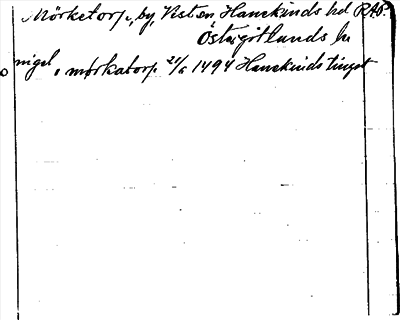 Mörketorp, by, Vist sn Hanekinds hd R.A.P.
Östergötlands län
nigel, i mørkatorp 21/6 1494 Hanekinds tinget